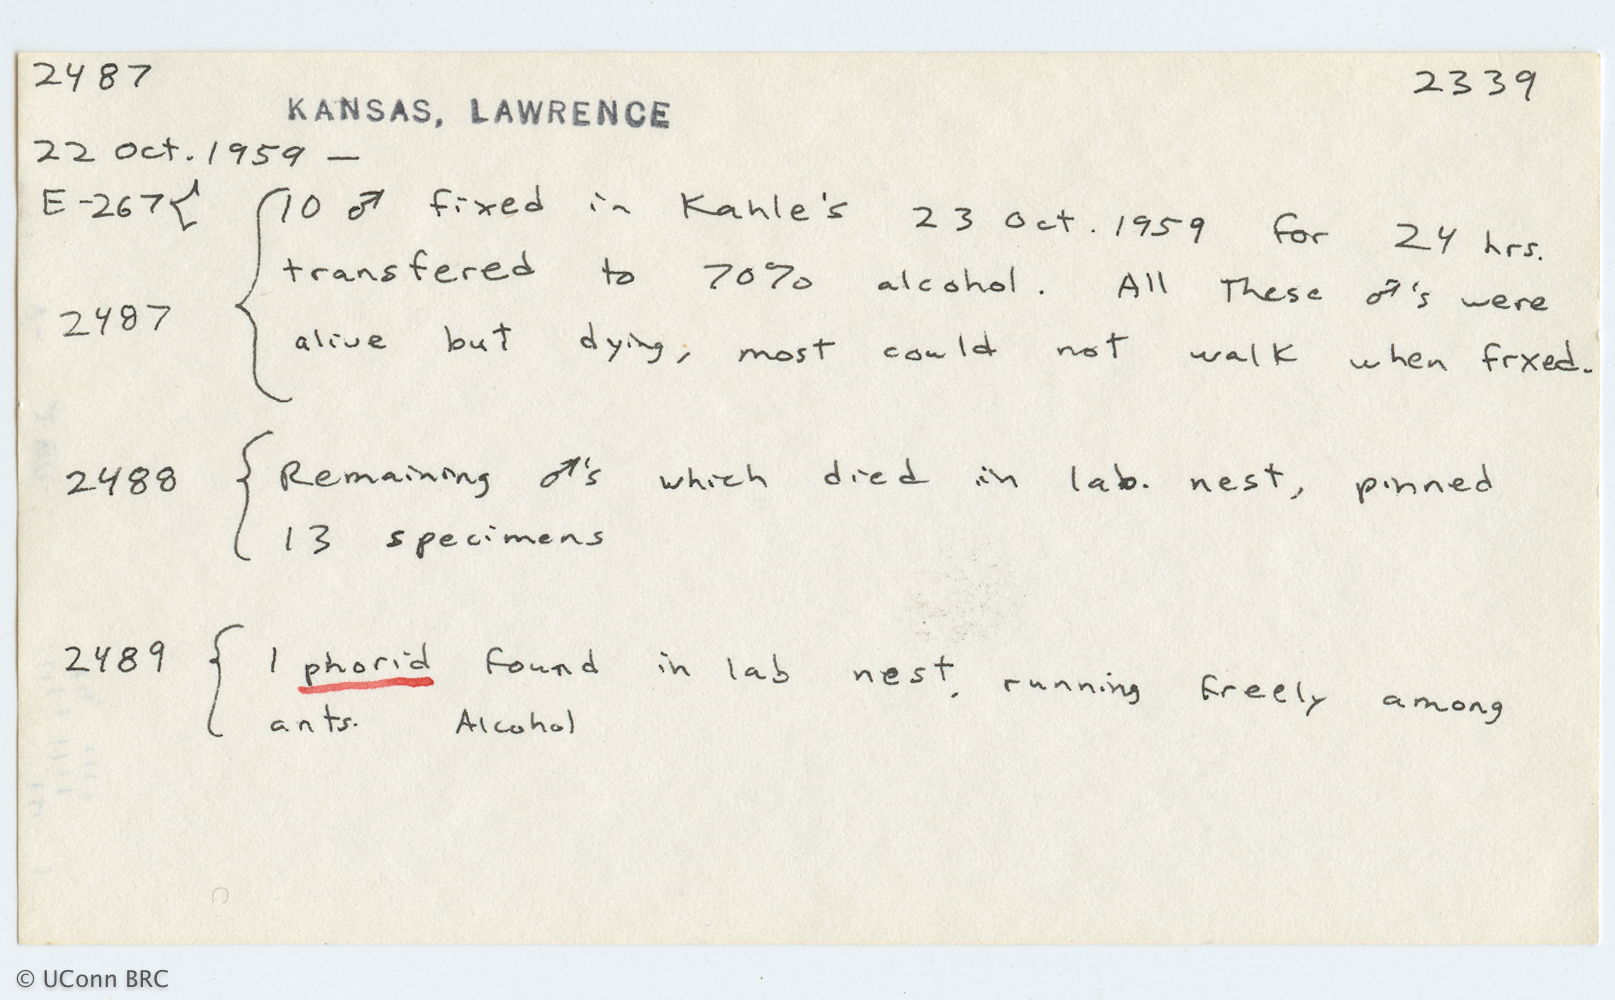 2487 2339
KANSAS, LAWRENCE
22 Oct. 1959 —
E-267 { 10 ♂ fixed in Kahle's 23 Oct. 1959 for 24 hrs.
transfered to 70% alcohol. All These ♂'s were
2487
alive but dying, most could not walk when fixed.
2488 { Remaining ♂'s which died in lab. nest, pinned
13 specimens
2489 { 1 phorid found in lab nest, running freely among
ants. Alcohol
© UConn BRC